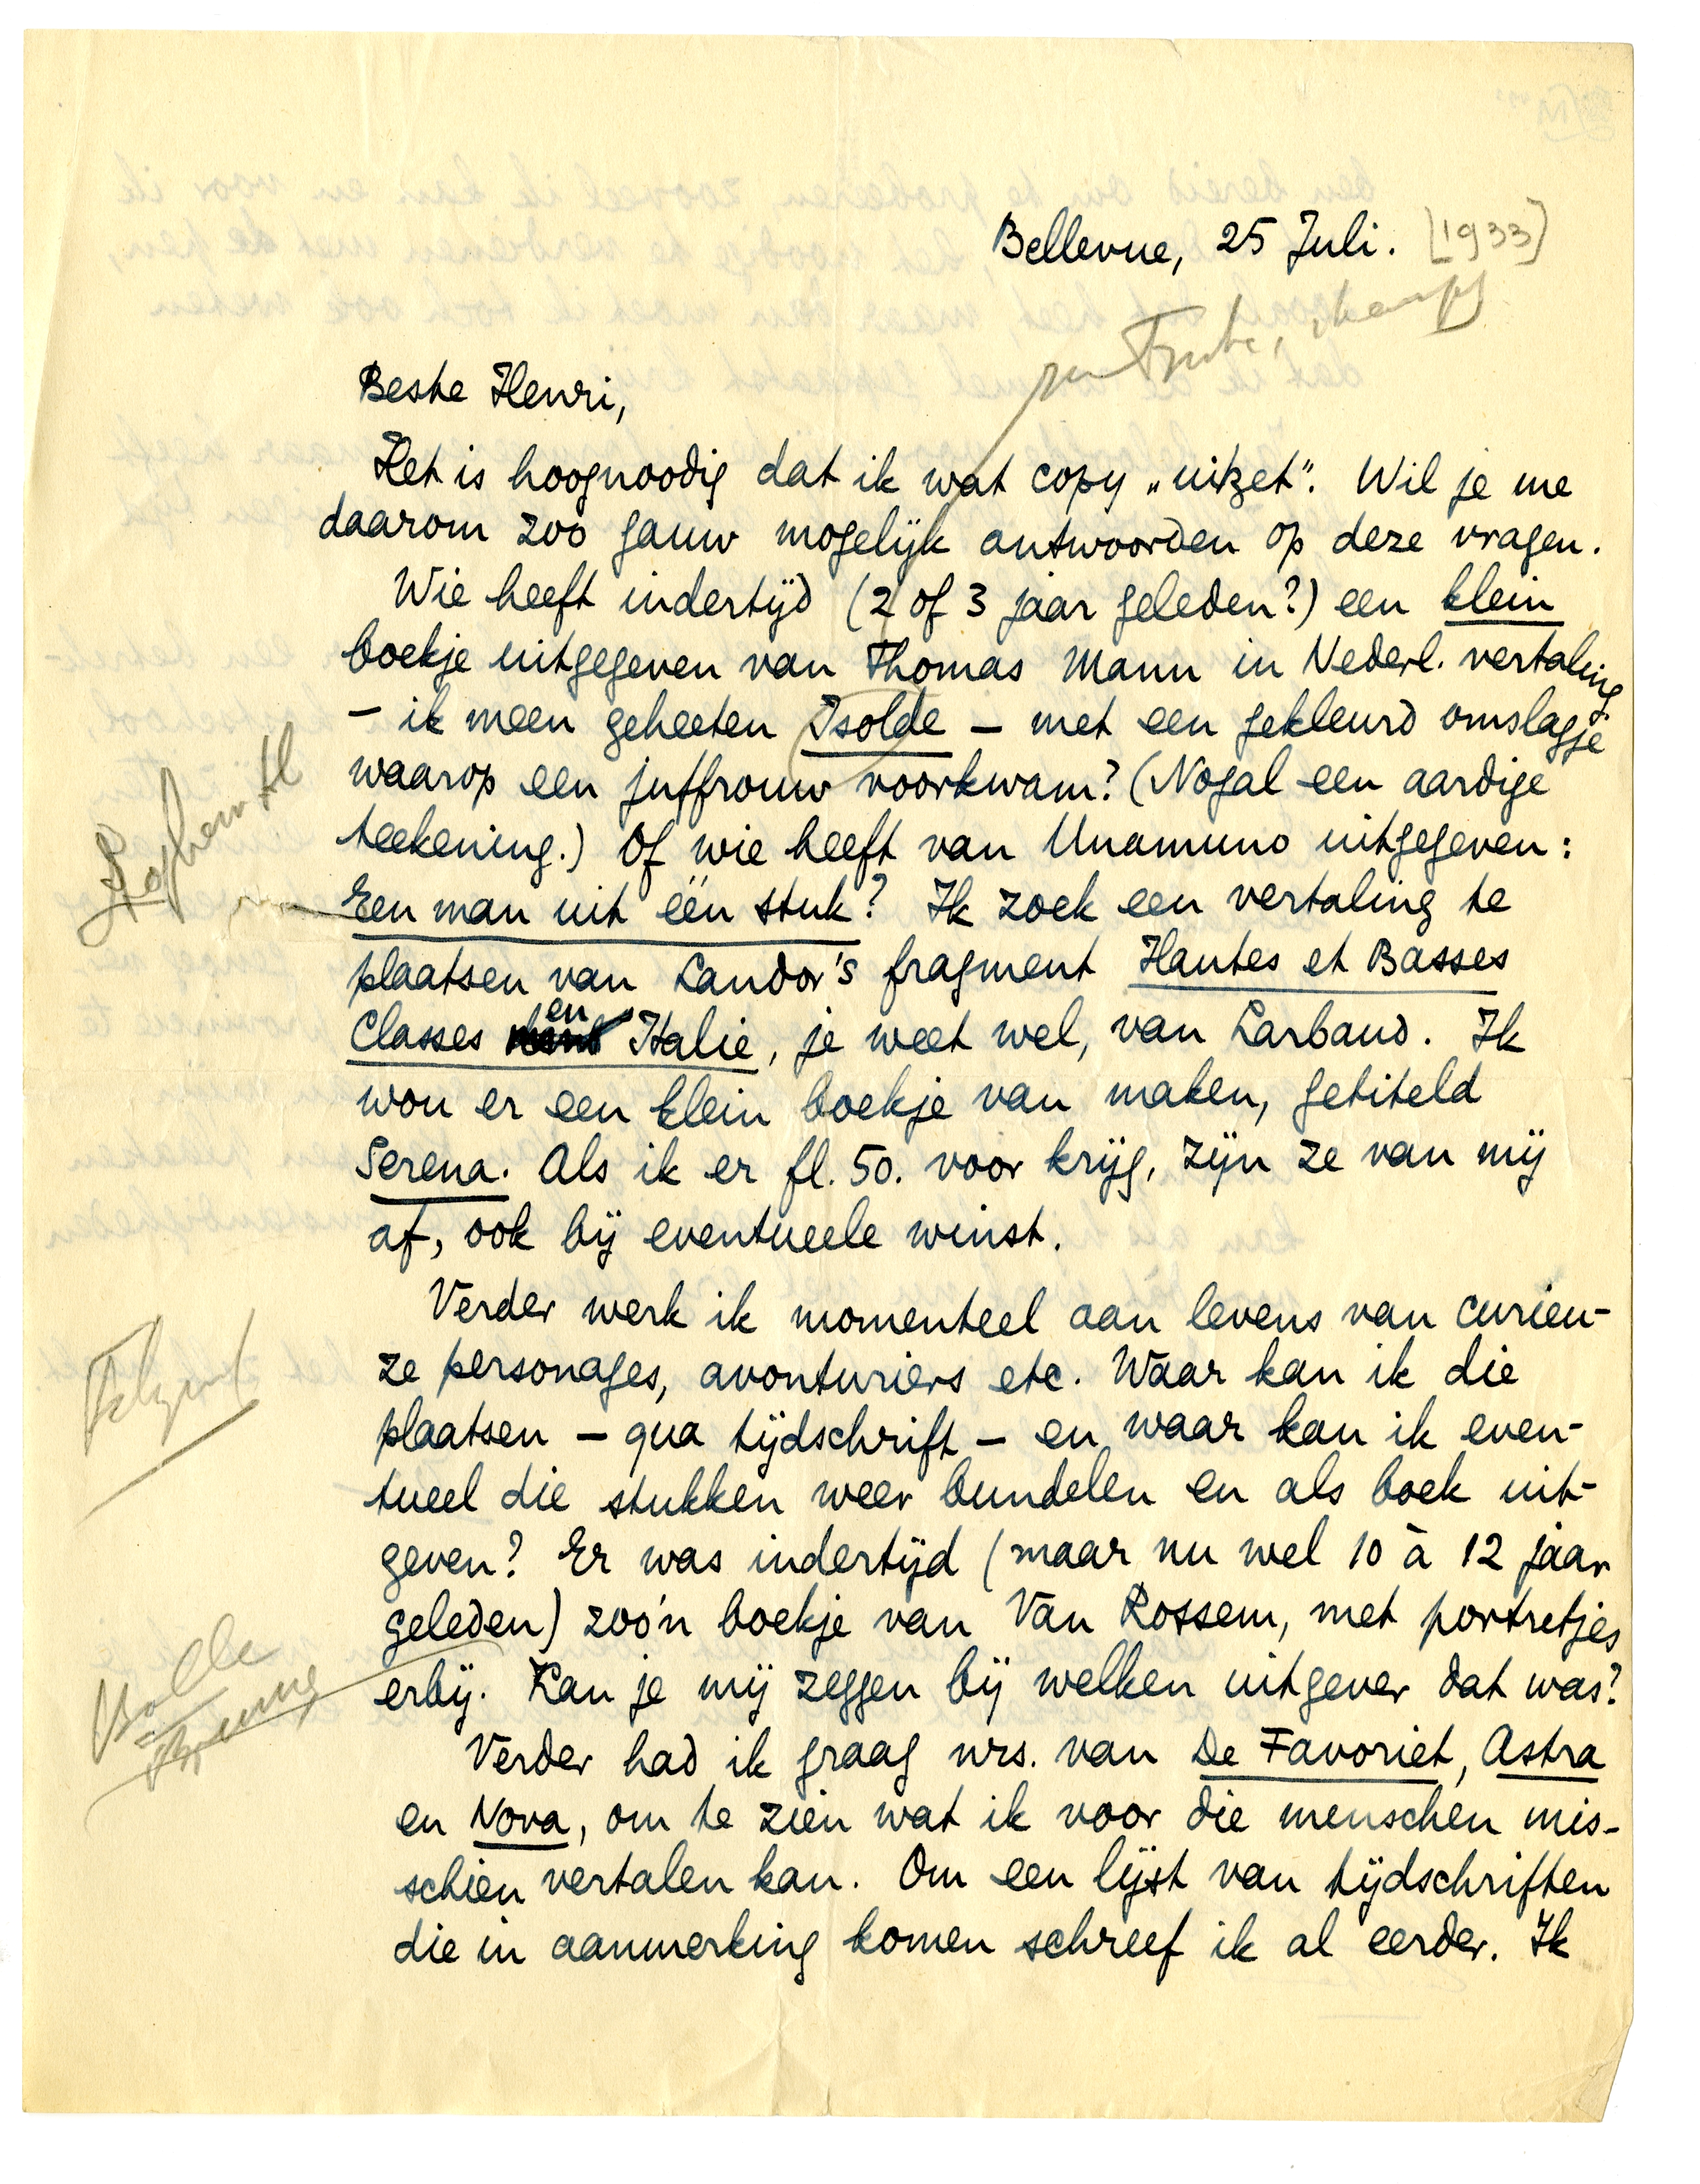 Bellevue, 25 Juli. [1933]
Beste Henri,
Het is hoognoodig dat ik wat copy „uitzet". Wil je me
daarom zoo gauw mogelijk antwoorden op deze vragen.
Wie heeft indertijd (2 of 3 jaar geleden?) een klein
boekje uitgegeven van Thomas Mann in Nederl. vertaling
– ik meen geheeten Isolde – met een gekleurd omslagje
waarop een juffrouw voorkwam? (Nogal een aardige
teekening.) Of wie heeft van Unamuno uitgegeven:
Een man uit één stuk? Ik zoek een vertaling te
plaatsen van Landor's fragment Hautes et Basses
Classes en Italie, je weet wel, van Larbaud. Ik
wou er een klein boekje van maken, getiteld
Serena. Als ik er fl. 50. voor krijg, zijn ze van mij
af, ook bij eventueele winst.
Verder werk ik momenteel aan levens van curieu-
ze personages, avonturiers etc. Waar kan ik die
plaatsen – qua tijdschrift – en waar kan ik even-
tueel die stukken weer bundelen en als boek uit-
geven? Er was indertijd (maar nu wel 10 à 12 jaar
geleden) zoo'n boekje van Van Rossem, met portretjes
erbij. Kan je mij zeggen bij welken uitgever dat was?
Verder had ik graag nrs. van De Favoriet, Astra
en Nova, om te zien wat ik voor die menschen mis-
schien vertalen kan. Om een lijst van tijdschriften
die in aanmerking komen schreef ik al eerder. Ik